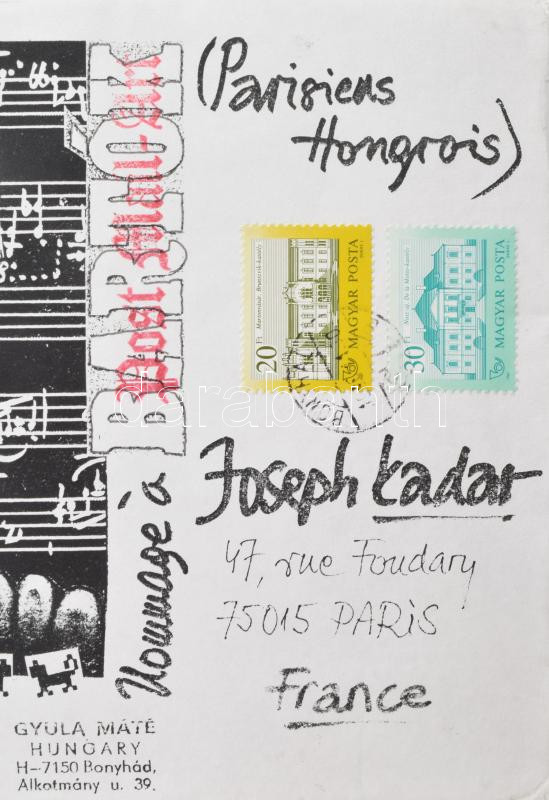 (Parisiens
Hongrois)
BARTÓK
Post Mail-Art
Hommage à
20 Ft Martonvásár. Brunszvik-kastély
MAGYAR POSTA
30
MAGYAR POSTA
BONYHÁD
darabanth
Joseph Kadar
47, rue Foudary
75015 PARiS
France
GYULA MÁTÉ
HUNGARY
H-7150 Bonyhád,
Alkotmány u. 39.